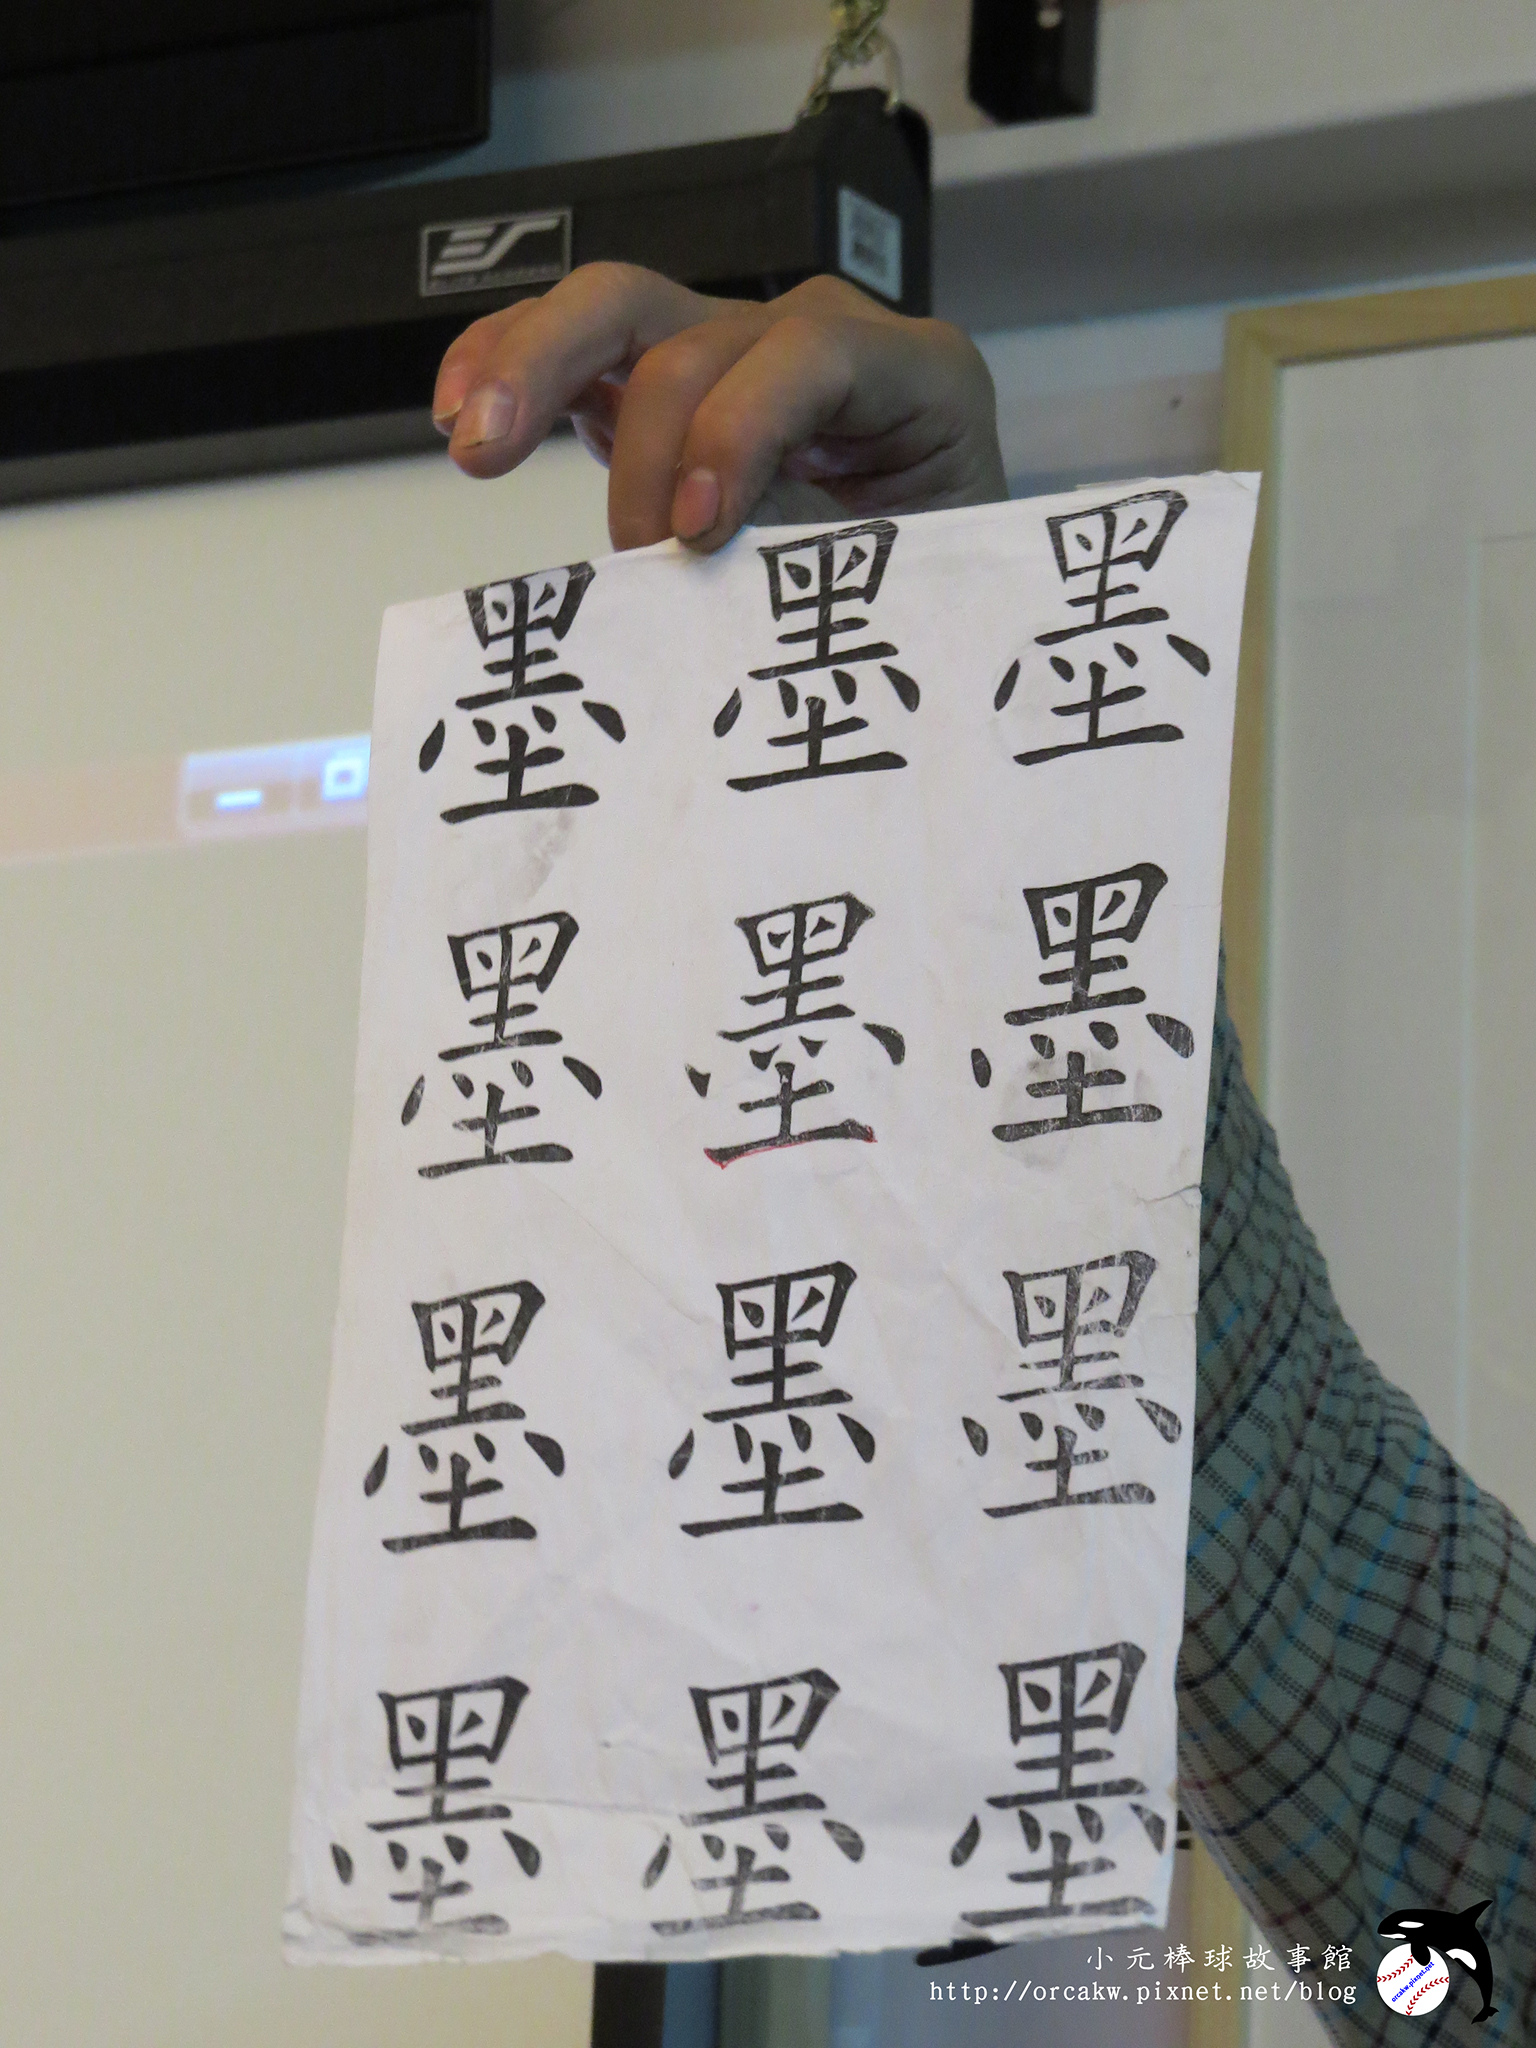 ES
墨 墨 墨
墨 墨 墨
墨 墨 墨
墨 墨 墨
小元棒球故事館
http://orcakw.pixnet.net/blog
orcakw.pixnet.net